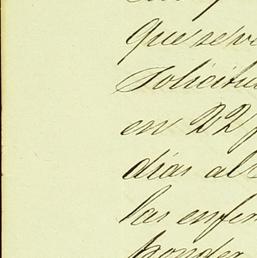 que se v
solicitu
en 22 f
días al
las enfer
ponder